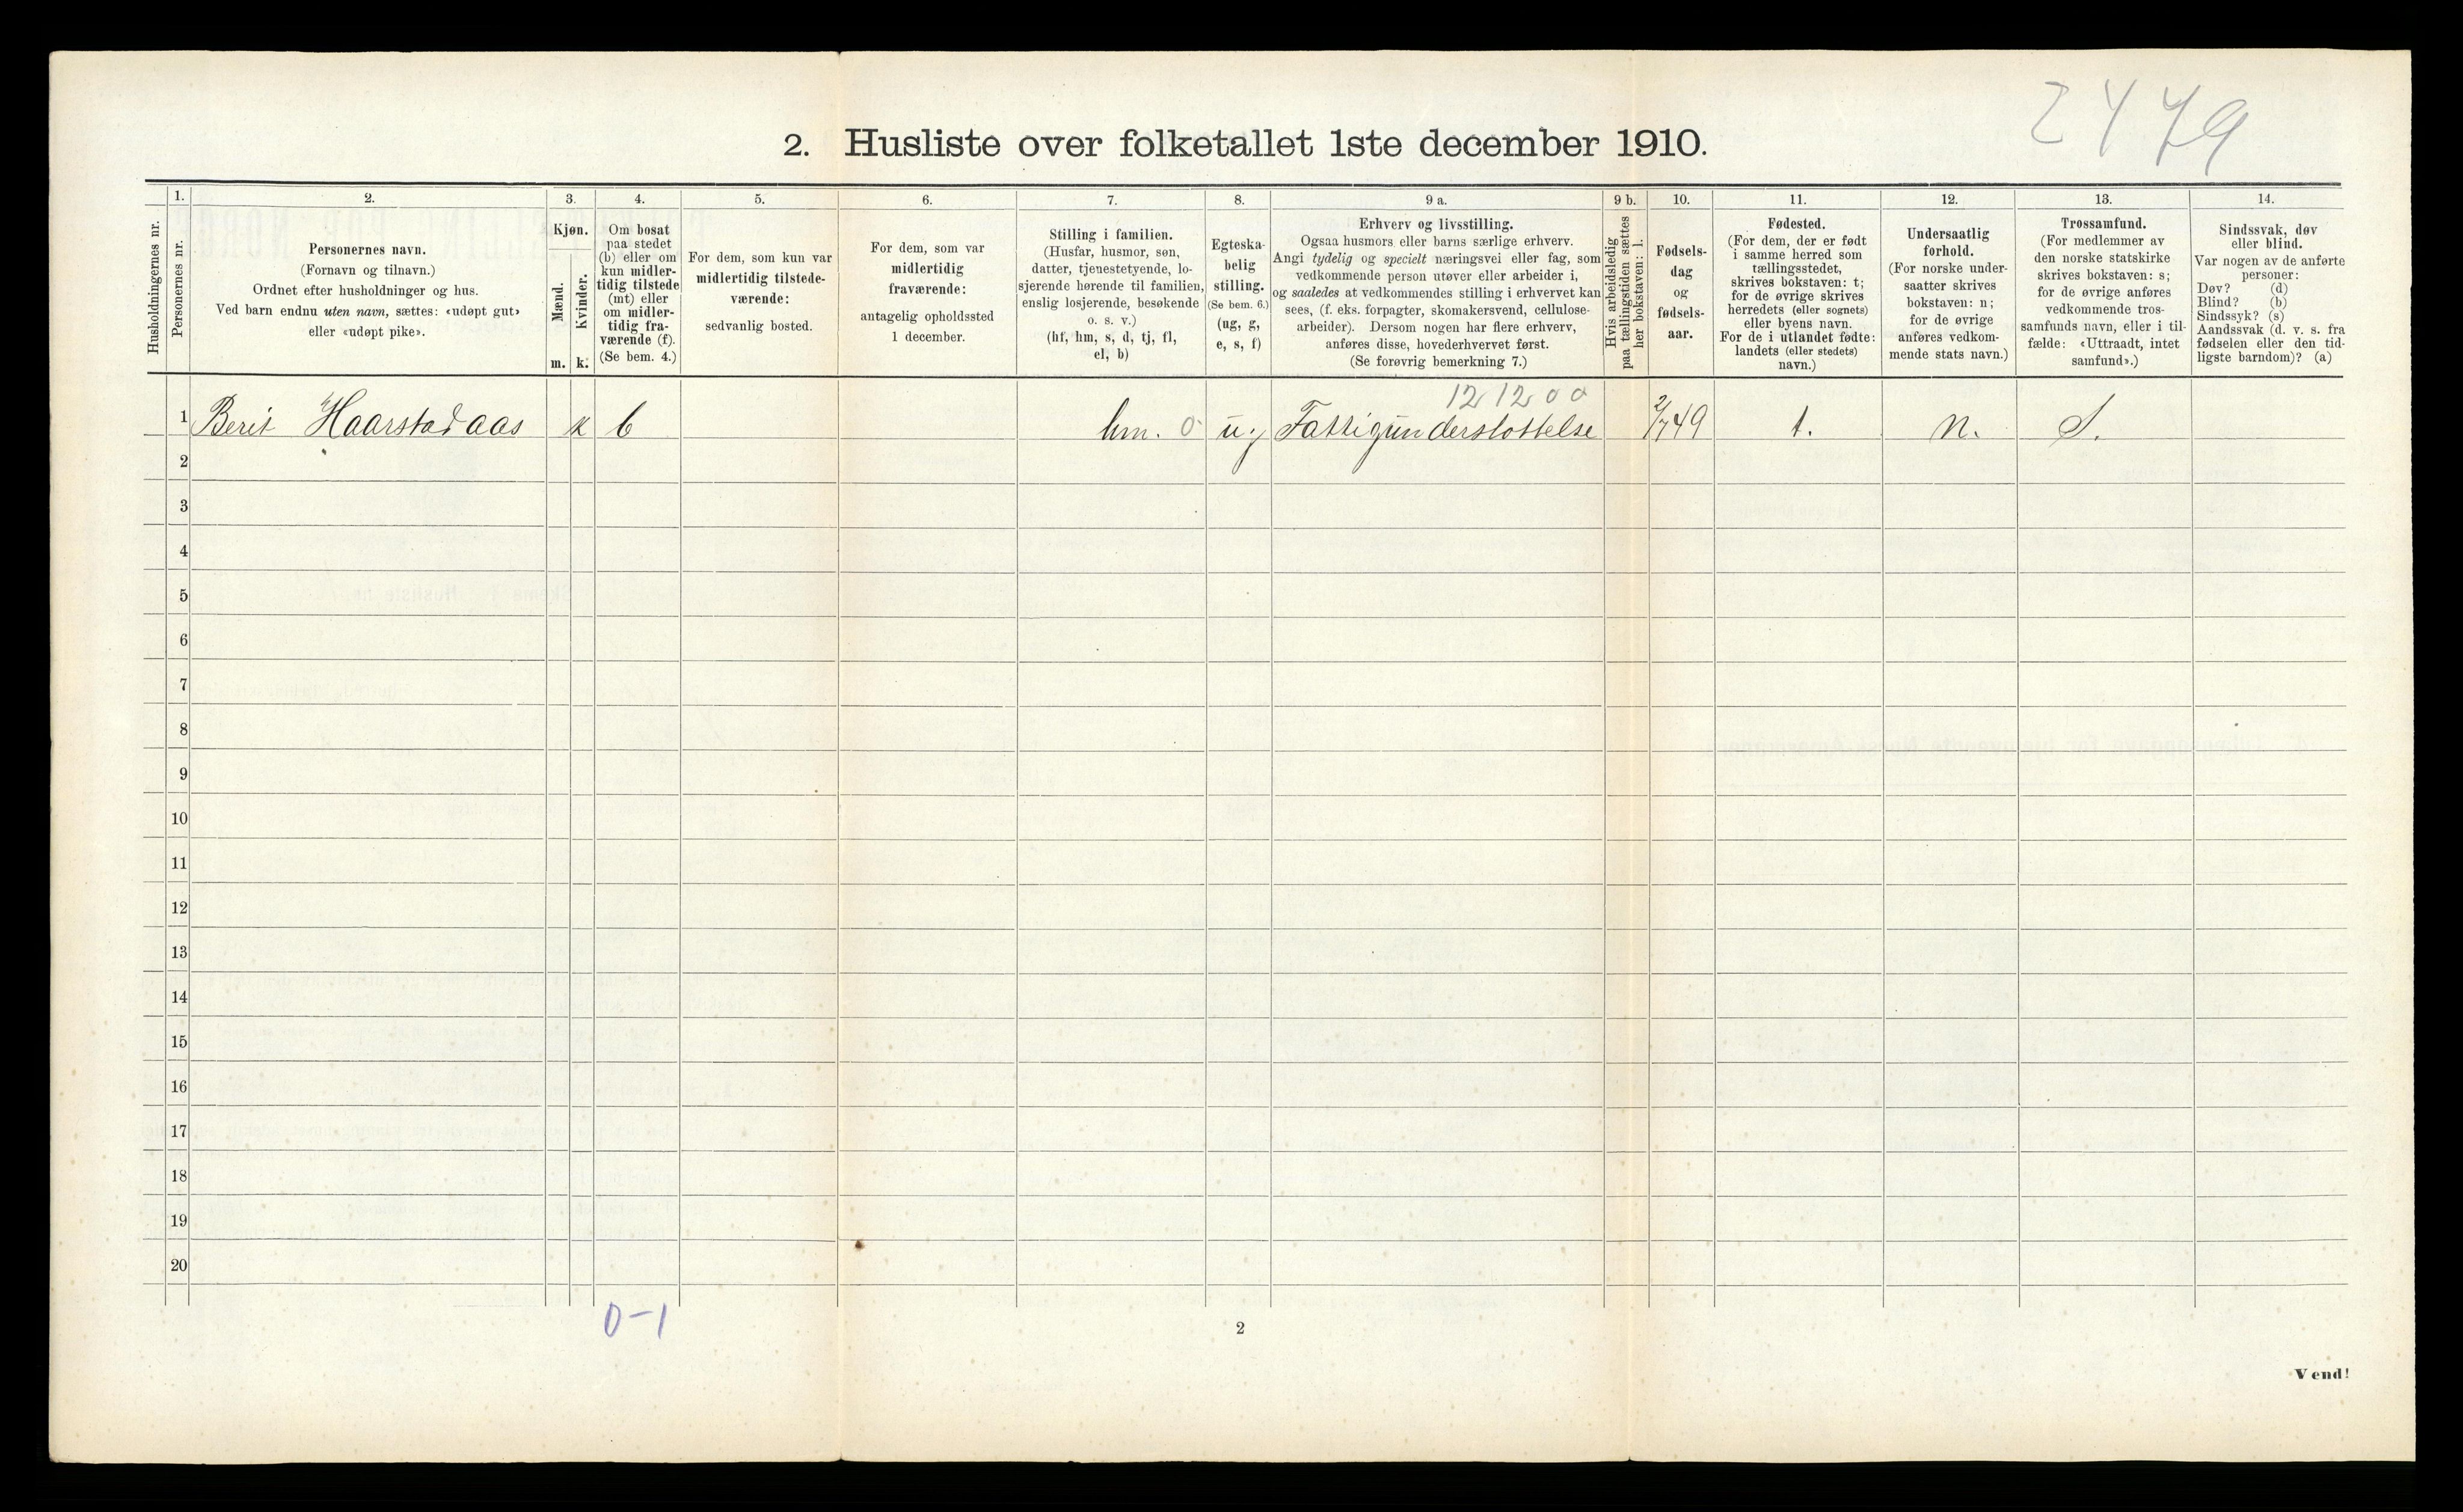 2479
2. Husliste over folketallet 1ste december 1910.
Husholdningernes nr.
1.
Personernes nr.
2.
Personernes navn.
(Fornavn og tilnavn.)
Ordnet efter husholdninger og hus.
Ved barn endnu uten navn, sættes: «udøpt gut»
eller «udøpt pike».
3.
Kjøn.
Mænd.
Kvinder.
m. k.
4.
Om bosat
paa stedet
(b) eller om
kun midler-
tidig tilstede
(mt) eller
om midler-
tidig fra-
værende (f).
(Se bem. 4.)
5.
For dem, som kun var
midlertidig tilstede-
værende:
sedvanlig bosted.
6.
For dem, som var
midlertidig
fraværende:
antagelig opholdssted
1 december.
7.
Stilling i familien.
(Husfar, husmor, søn,
datter, tjenestetyende, lo-
sjerende hørende til familien,
enslig losjerende, besøkende
o. s. v.)
(hf, hm, s, d, tj, fl,
el, b)
8.
Egteska-
belig
stilling.
(Se bem. 6.)
(ug, g,
e, s, f)
9 a.
Erhverv og livsstilling.
Ogsaa husmors eller barns særlige erhverv.
Angi tydelig og specielt næringsvei eller fag, som
vedkommende person utøver eller arbeider i,
og saaledes at vedkommendes stilling i erhvervet kan
sees, (f. eks. forpagter, skomakersvend, cellulose-
arbeider). Dersom nogen har flere erhverv,
anføres disse, hovederhvervet først.
(Se forøvrig bemerkning 7.)
9 b.
Hvis arbeidsledig
paa tællingstiden sættes
her bokstaven: l.
10.
Fødsels-
dag
og
fødsels-
aar.
11.
Fødested.
(For dem, der er født
i samme herred som
tællingsstedet,
skrives bokstaven: t;
for de øvrige skrives
herredets (eller sognets)
eller byens navn.
For de i utlandet fødte:
landets (eller stedets)
navn.)
12.
Undersaatlig
forhold.
(For norske under-
saatter skrives
bokstaven: n;
for de øvrige
anføres vedkom-
mende stats navn.)
13.
Trossamfund.
(For medlemmer av
den norske statskirke
skrives bokstaven: s;
for de øvrige anføres
vedkommende tros-
samfunds navn, eller i til-
fælde: «Uttraadt, intet
samfund».)
14.
Sindssvak, døv
eller blind.
Var nogen av de anførte
personer:
Døv? (d)
Blind? (b)
Sindssyk? (s)
Aandssvak (d. v. s. fra
fødselen eller den tid-
ligste barndom)? (a)
12 12 0 0
1 Berit Haarstadaas k b hm. 0 ug Fattigunderstøttelse 2/7 49 t. n. S.
2
3
4
5
6
7
8
9
10
11
12
13
14
15
16
17
18
19
20
0-1
2
Vend!